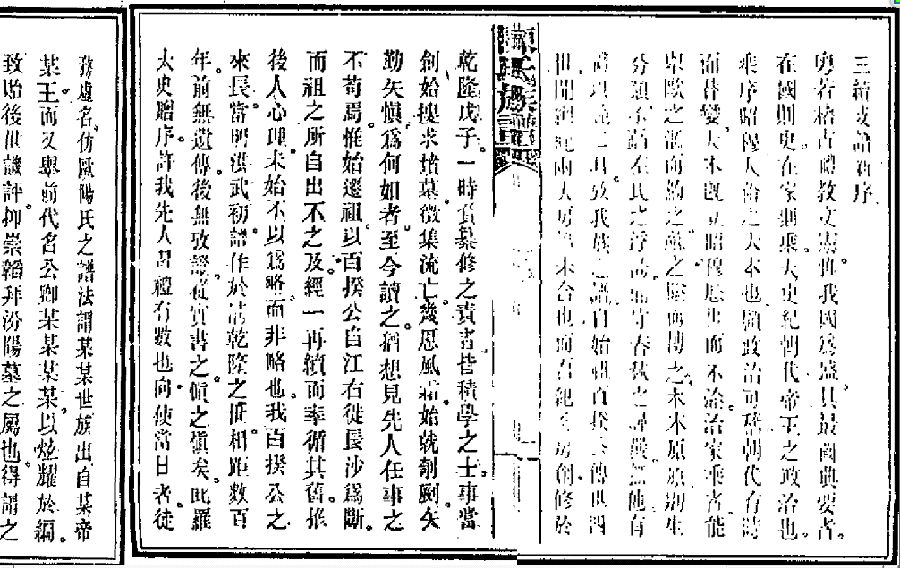 三續支譜序
粵若稽古禮教文憲推我國爲盛其最國典要者
在國則史在家則乘夫史紀朝代帝王之政治也
乘序昭穆人倫之大本也顧政治可隨朝代有時
而變大本既立昭穆歷世而不渝治家乘者能
歐之潔而約之之而博之本末原原別生
分類不蹈左氏之浮誇而守春秋之謹嚴無他有
攷我族之譜自始祖百揆公傳世四
世閒兩大房未合也而吾紀公房創修於
乾隆戊子一時負纂修之責者皆積學之士事當
創始搜求墳墓徵集流亡幾思風霜始就剞劂矢
勤矢愼爲何如者至今讀之猶想見先人任事之
不苟焉惟始遷祖以百揆公自江右徙長沙爲斷
而祖之所自出不之及經一再續而率循其舊揆
後人心理未始不以爲略而非略也我百揆公之
來長當明洪武初譜作於淸乾隆之世相距數百
年前無遺傳後無攷證質實書之愼之愼矣此羅
太史贈序許我先人習禮有數也向使當日者徒
務虛名仿歐陽氏之譜法謂某某世族出自某帝
某王而又舉前代名公卿某某某某以炫耀於
致貽後世譏評抑崇韜拜汾陽墓之屬也得謂之